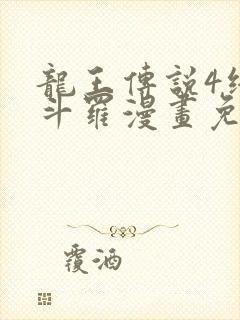 龍王傳說4終
斗羅漫畫免
覆酒